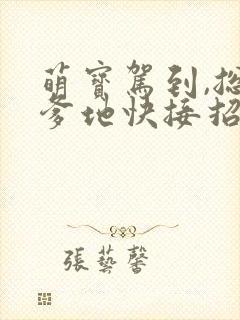 萌寳駕到,总
爹地快接招
張藝馨